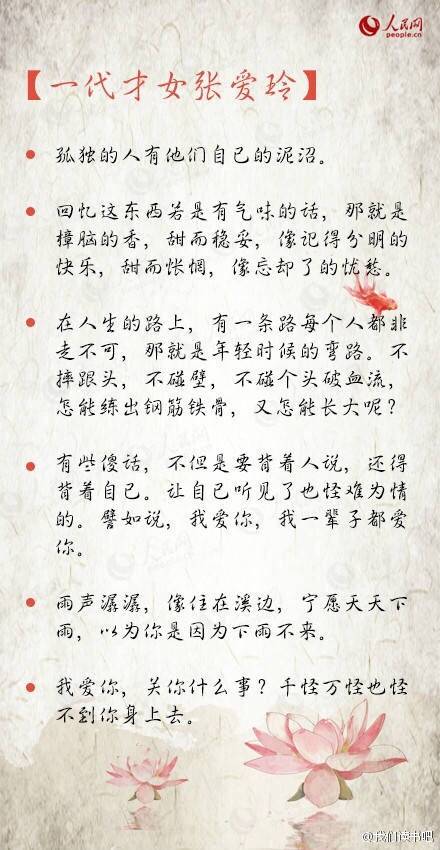 人民网
people.cn
【一代才女张爱玲】
孤独的人有他们自己的泥沼。
回忆这东西若是有气味的话，那就是
樟脑的香，甜而稳妥，像记得分明的
快乐，甜而怅惘，像忘却了的忧愁。
在人生的路上，有一条路每个人都非
走不可，那就是年轻时候的弯路。不
摔跟头，不碰壁，不碰个头破血流，
怎能练出钢筋铁骨，又怎能长大呢？
有些傻话，不但是要背着人说，还得
背着自己。让自己听见了也怪难为情
的。譬如说，我爱你，我一辈子都爱
你。
雨声潺潺，像住在溪边，宁愿天天下
雨，以为你是因为下雨不来。
我爱你，关你什么事？千怪万怪也怪
不到你身上去。
@我们读书吧